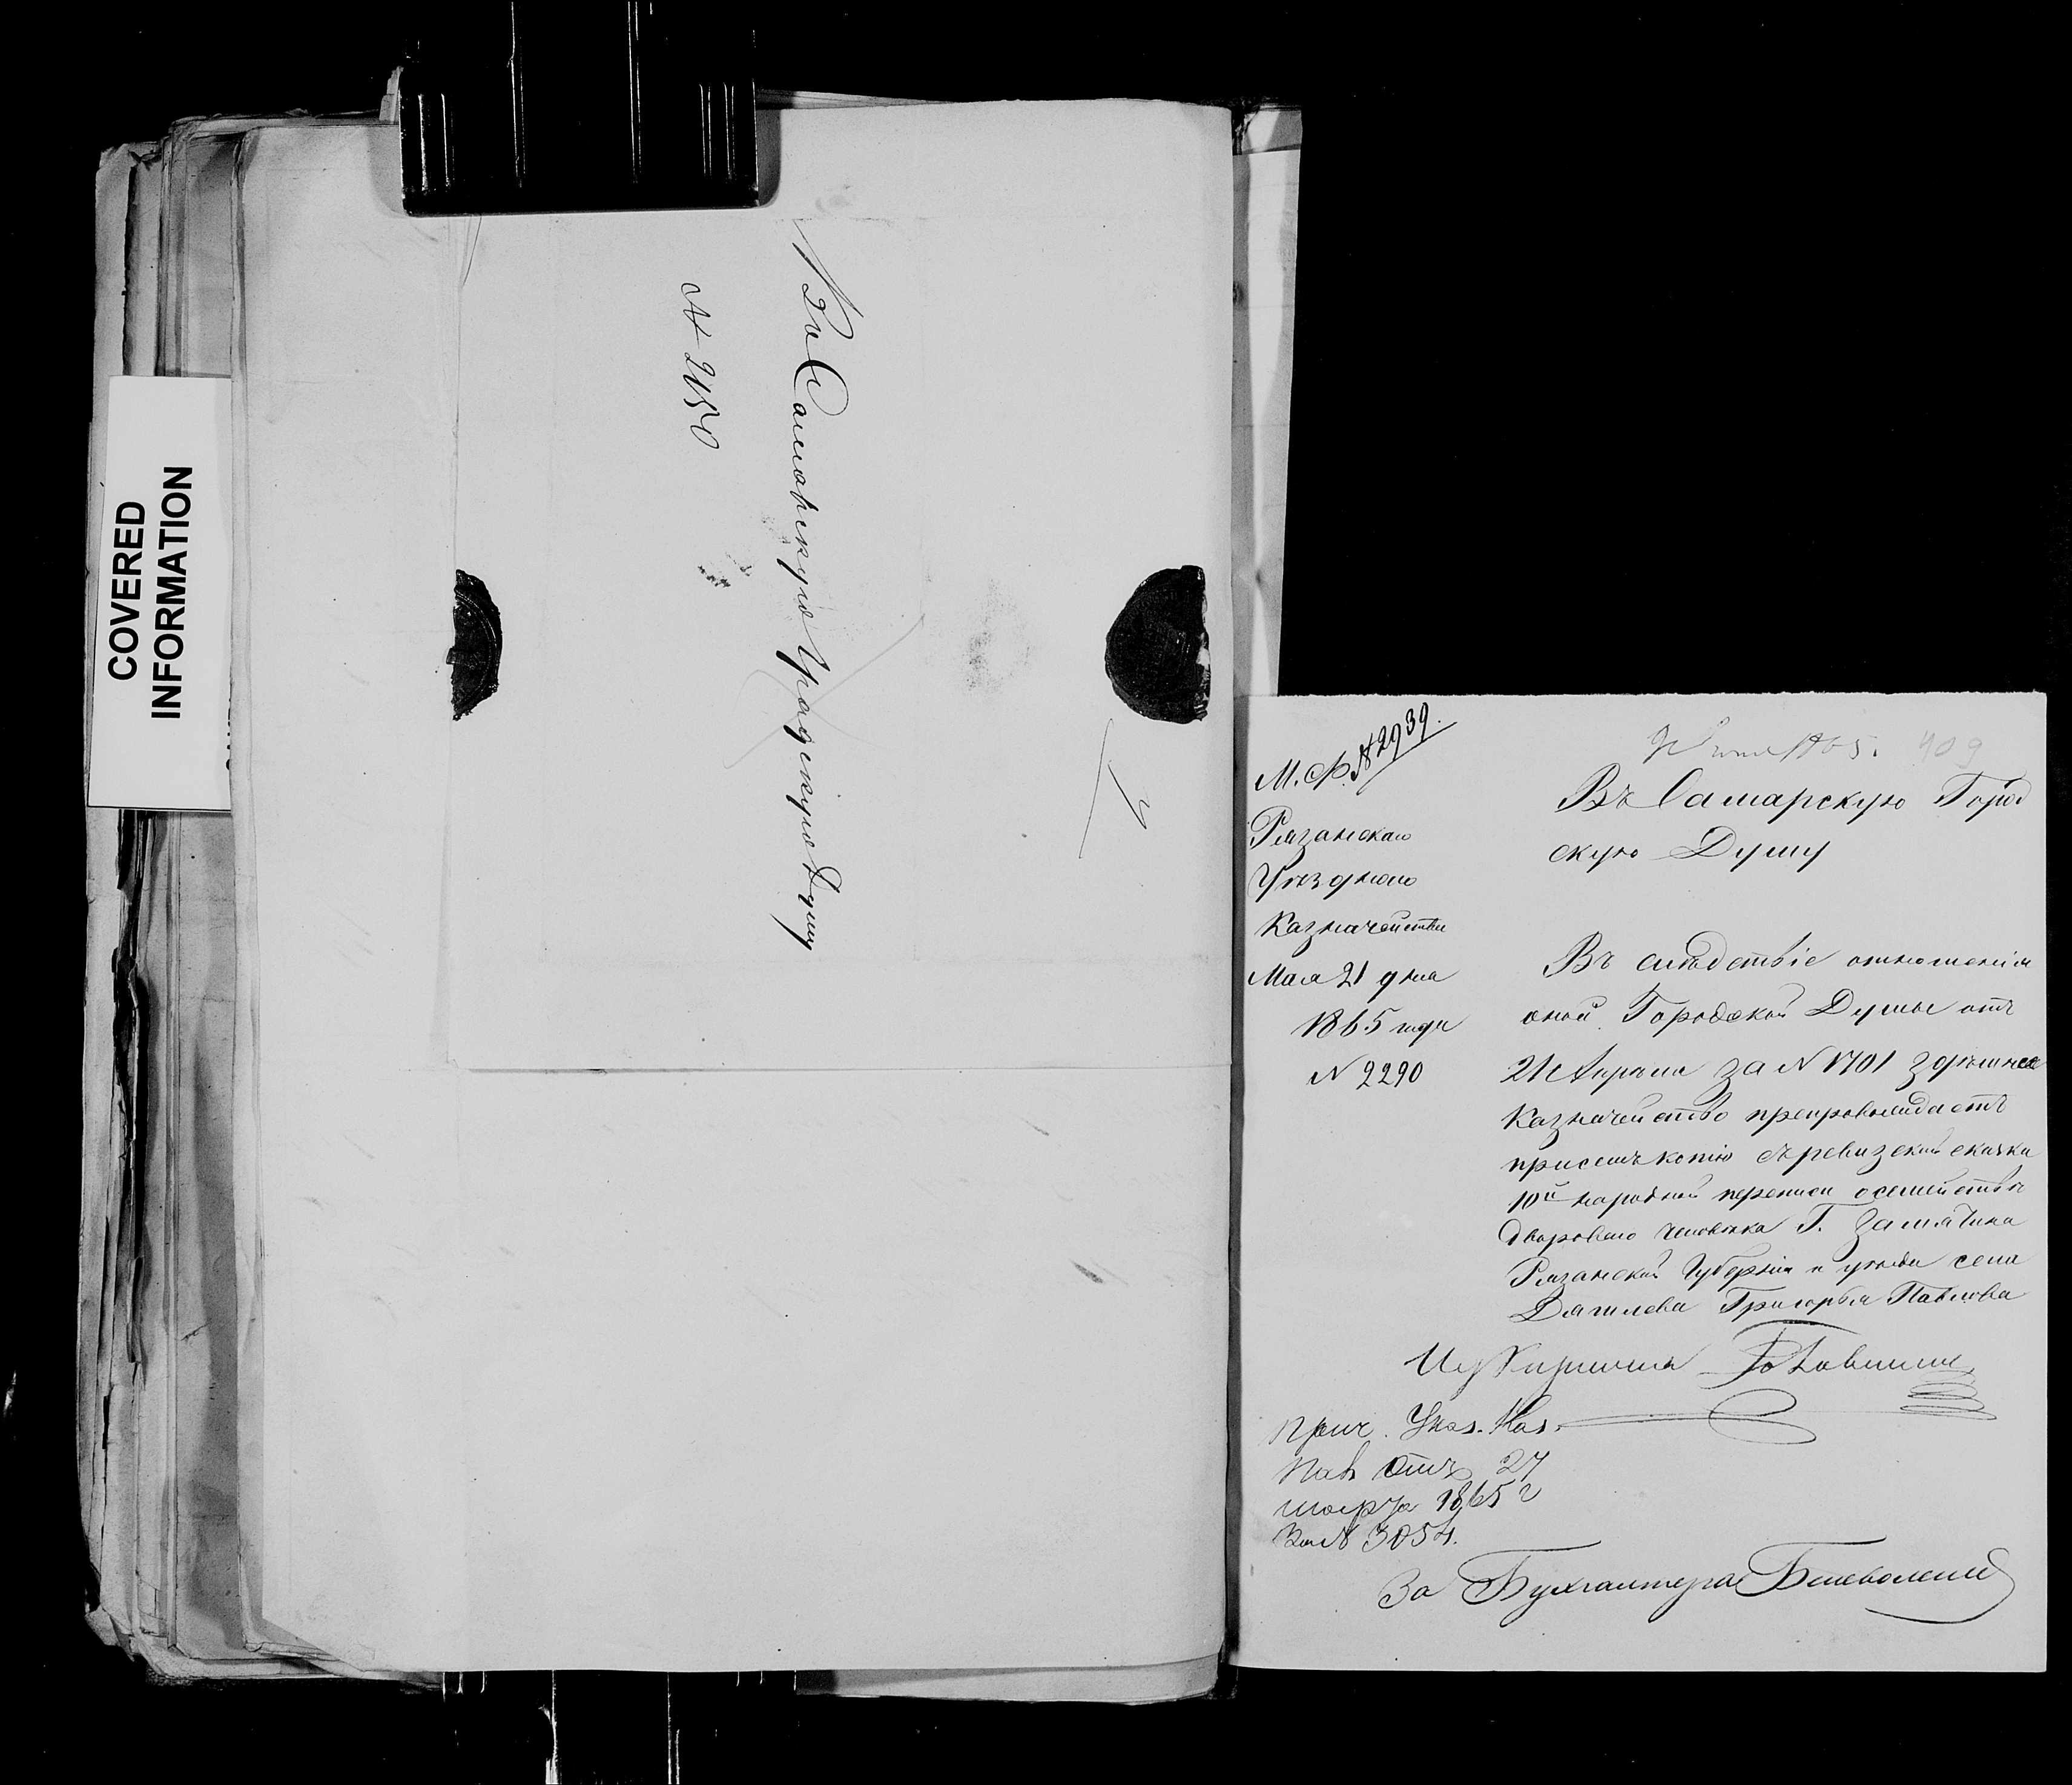 COVERED
INFORMATION
Въ Самарскую Градскую Думу
№ 2450
№ 2939.
М. Ф.
Рязанскаго
Уѣзднаго
Казначейства
Мая 21 дня
1865 года
№ 2290
1865. 409
Въ Самарскую Город
скую Думу
Въ слѣдствіе отношенія
оной Городской Думы отъ
21 Апрѣля за № 1701 здѣшнее
Казначейство препровождаетъ
при семъ копію съ ревизской сказки
10й народной переписи о семействѣ
двороваго человѣка Г. Замятина
Рязанской Губерніи и уѣзда села
Дягилева Григорья Павлова
прич. Указ. Каз.
Пал. отъ 27
марта 1865 г
За № 3054.
За Бухгалтера